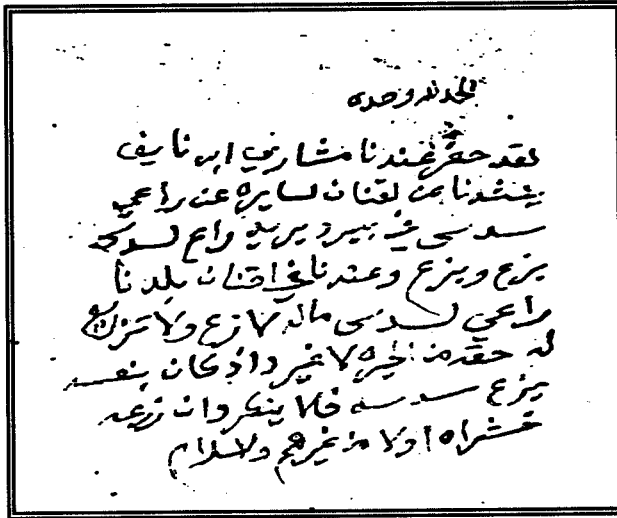 الحمد لله وحده
لقد حضر عندنا مشاري ابن نايف
ينشدنا عن لقنات لسايره عن راعي
سدسى في بير ديريد راع لسدسه
يزع ويزع وعندنا في اقنات بلدنا
راعي لسدسى ماله لا زع ولا
له حقه من الجيره لا غير واذ كان بنفسه
يزع سدسه فلا ينكر وان زرعه
اولا من غيرهم ولسلام